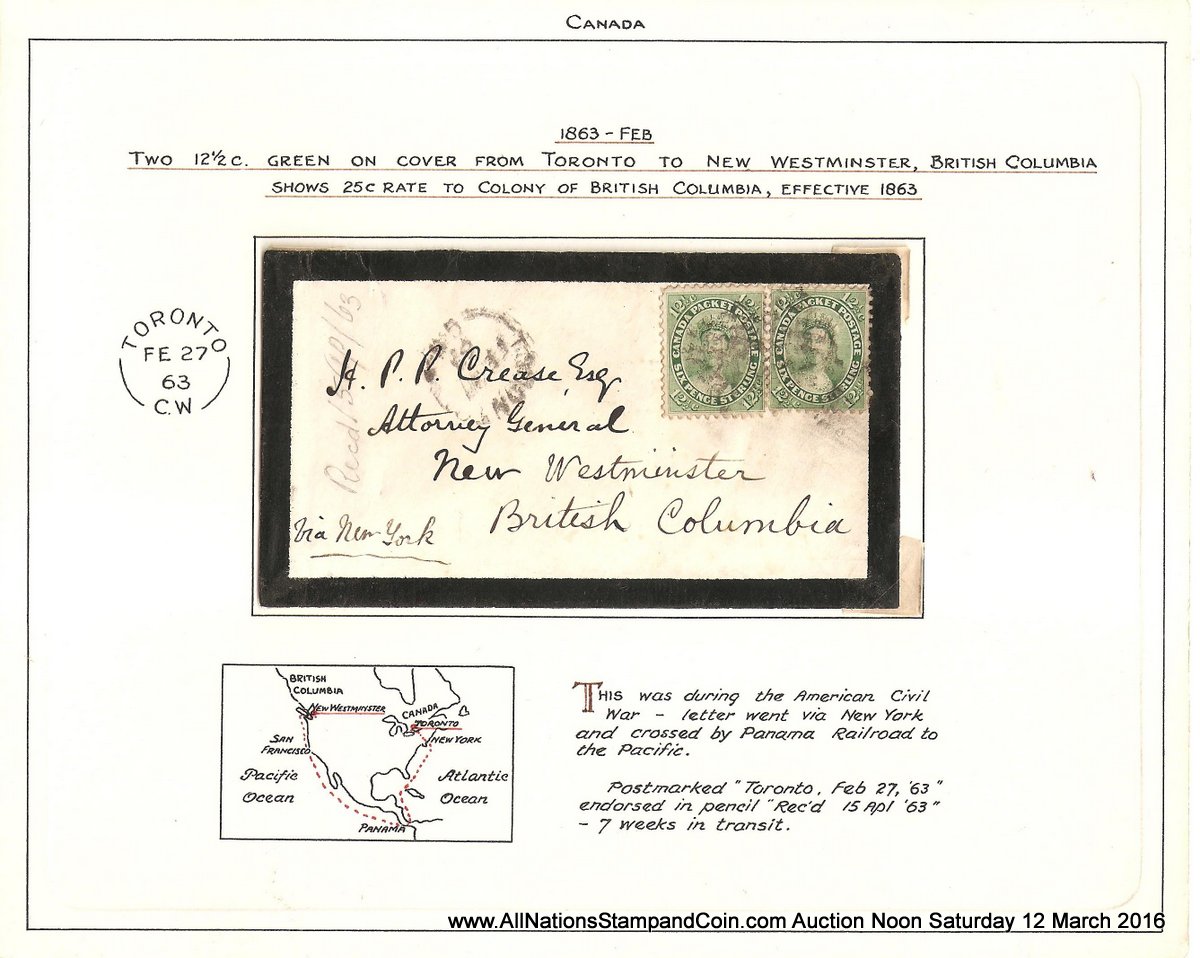 CANADA
1863 - FEB
TWO 12½C. GREEN ON COVER FROM TORONTO TO NEW WESTMINSTER, BRITISH COLUMBIA
SHOWS 25C RATE TO COLONY OF BRITISH COLUMBIA, EFFECTIVE 1863
TORONTO
FE 27
63
C.W
Recd/15/Ap/63
12½c 12½c
CANADA PACKET POSTAGE
SIX PENCE STERLING
12½c 12½c
12½c 12½c
CANADA PACKET POSTAGE
SIX PENCE STERLING
12½c 12½c
H. P. P. Crease, Esq
Attorney General
New Westminster
British Columbia
Via New York
BRITISH
COLUMBIA
NEW WESTMINSTER
CANADA
TORONTO
SAN
FRANCISCO
NEW YORK
Pacific
Ocean
Atlantic
Ocean
PANAMA
THIS was during the American Civil
War - letter went via New York
and crossed by Panama Railroad to
the Pacific.
Postmarked "Toronto, Feb 27, '63"
endorsed in pencil "Rec'd 15 Apl '63"
- 7 weeks in transit.
www.AllNationsStampandCoin.com Auction Noon Saturday 12 March 2016